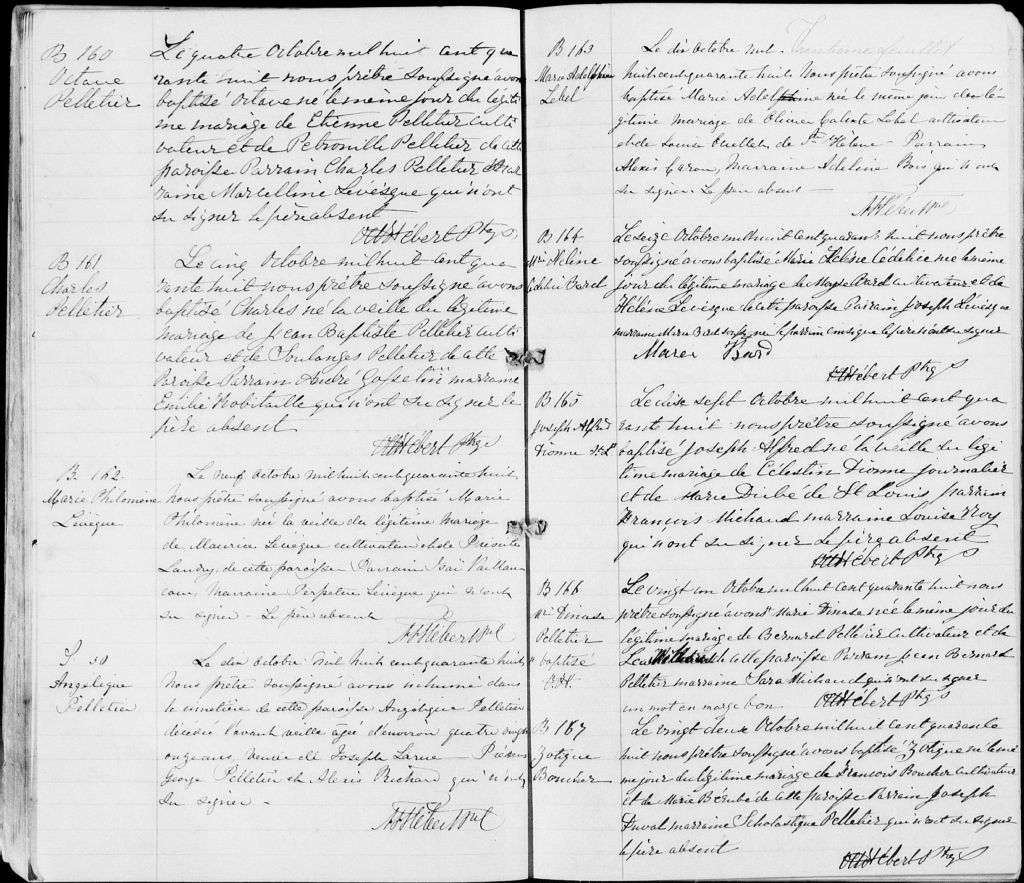 B 160
Octave
Pelletier
Le quatre Octobre mil huit cent qua
rante huit nous prêtre soussigné avons
baptisé Octave né le même jour du légiti
me mariage de Etienne Pelletier culti
vateur et de Petronille Pelletier de cette
paroisse Parrain Charles Pelletier Mar
raine Marcelline Levesque qui n'ont
su signer le père absent
Hébert Ptre
B 161
Charles
Pelletier
Le cinq Octobre mil huit cent qua
rante huit nous prêtre soussigné avons
baptisé Charles né la veille du légitime
mariage de Jean Baptiste Pelletier culti
vateur et de Soulanges Pelletier de cette
Paroisse Parrain André Gosselin marraine
Emilie Robitaille qui n'ont su signer le
père absent
Hébert Ptre
B. 162
Marie Philomène
Levèque
Le neuf Octobre mil huit cent quarante huit
Nous prêtre soussigné avons baptisé Marie
Philomène née la veille du légitime mariage
de Maurice Levèque cultivateur et de
Landry de cette paroisse. Parrain Vaillan
cour, Marraine Perpetue Levèque qui n'ont
su signer. Le père absent
Hébert
S. 50
Angélique
Pelletier
Le dix octobre mil huit cent quarante huit
Nous prêtre soussigné avons inhumé dans
le cimetière de cette paroisse Angélique Pelletier
décédée l'avant veille agée d'environ quatre vingt
onze ans, veuve de Joseph Larue Présens
George Pelletier et Alexis Richard qui n'ont
su signer -
Hébert
Trentième feuillet
B 163
Marie Adelphine
Lebel
Le dix Octobre mil
huit cent quarante huit Nous prêtre soussigné avons
baptisé Marie Adelphine née le même jour du lé
gitime mariage de Olivier Calixte Lebel cultivateur
et de Louise Ouellet de Ste Hélène - Parrain
Alexis Caron, Marraine Adeline Bois qui n'ont
su signer. Le père absent
Hébert
B 164
Mrie Hélène
Bard
Le seize Octobre mil huit cent quarante huit nous prêtre
soussigné avons baptisé Marie Hélène née le même
jour du légitime mariage de Moyse Bard cultivateur et de
Hélène Levesque de cette paroisse Parrain Joseph Levesque
marraine Marie Bard soussignée le parrain le père n'ont su signer
Marie Bard
Hébert Ptre
B 165
Joseph Alfred
Dionne St L
Le dix sept Octobre mil huit cent qua
rante huit nous prêtre soussigné avons
baptisé Joseph Alfred né la veille du légi
time mariage de Célestin Dionne journalier
et de Marie Dubé de St Louis parrain
François Michaud marraine Louise Roy
qui n'ont su signer le père absent
Hébert Ptre
B 166
Mrie Dinasa
Pelletier
+ baptisé
Le vingt un Octobre mil huit cent quarante huit nous
prêtre soussigné avons + Marie Dinasa née le même jour du
légitime mariage de Bernard Pelletier cultivateur et de
Lea Michaud de cette paroisse Parrain Jean Bernard
Pelletier marraine Sara Michaud qui n'ont su signer
un mot en marge bon
Hébert Ptre
B 167
Zotique
Boucher
Le vingt deux Octobre mil huit cent quarante
huit nous prêtre soussigné avons baptisé Zotique né le mê
me jour du légitime mariage de François Boucher cultivateur
et de Marie Bérubé de cette paroisse Parrain Joseph
Duval marraine Scholastique Pelletier qui n'ont su signer
le père absent
Hébert Ptre